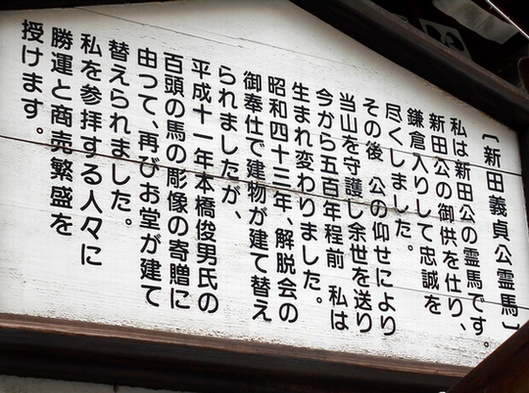 〔新田義貞公霊馬〕
私は新田公の霊馬です。
新田公の御供を仕り、
鎌倉入りして忠誠を
尽くしました。
その後 公の仰せにより
当山を守護し余世を送り
今から五百年程前 私は
生まれ変わりました。
昭和四十三年、解脱会の
御奉仕で建物が建て替え
られましたが、
平成十一年本橋俊男氏の
百頭の馬の彫像の寄贈に
由つて、再びお堂が建て
替えられました。
私を参拝する人々に
勝運と商売繁盛を
授けます。